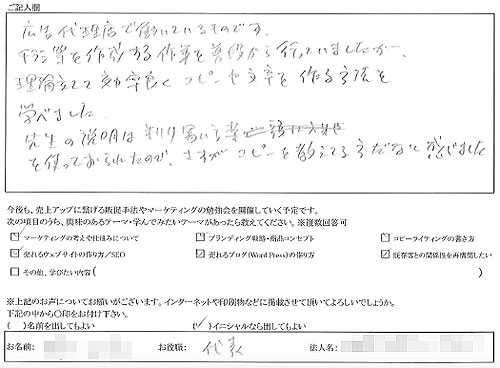 ご記入欄
広告代理店で働いているものです。
チラシ等を作成する作業を普段から行っていましたが、
理論立てて効率良くコピーや文章を作る方法を
学べました
先生の説明は判り易い言葉
を使っておられたので、さすがコピーを教えてる方だなと感じました
今後も、売上アップに繋げる販促手法やマーケティングの勉強会を開催していく予定です。
次の項目のうち、興味のあるテーマ・学んでみたいテーマがあったら教えてください。※複数回答可
マーケティングの考えや仕組みについて ブランディング戦略・商品コンセプト コピーライティングの書き方
売れるウェブサイトの作り方/SEO 売れるブログ(Word Press)の作り方 既存客との関係性を再構築したい
その他、学びたい内容( )
※上記のお声についてお願いがございます。インターネットや印刷物などに掲載させて頂いてよろしいでしょうか。
下記の中から○印をお付け下さい。
( )名前を出してもよい (✓)イニシャルなら出してもよい
お名前: お役職: 代表 法人名: